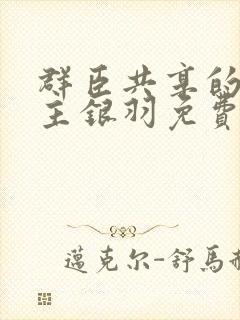 群臣共享的
主银羽免費
邁克尔-舒馬赫